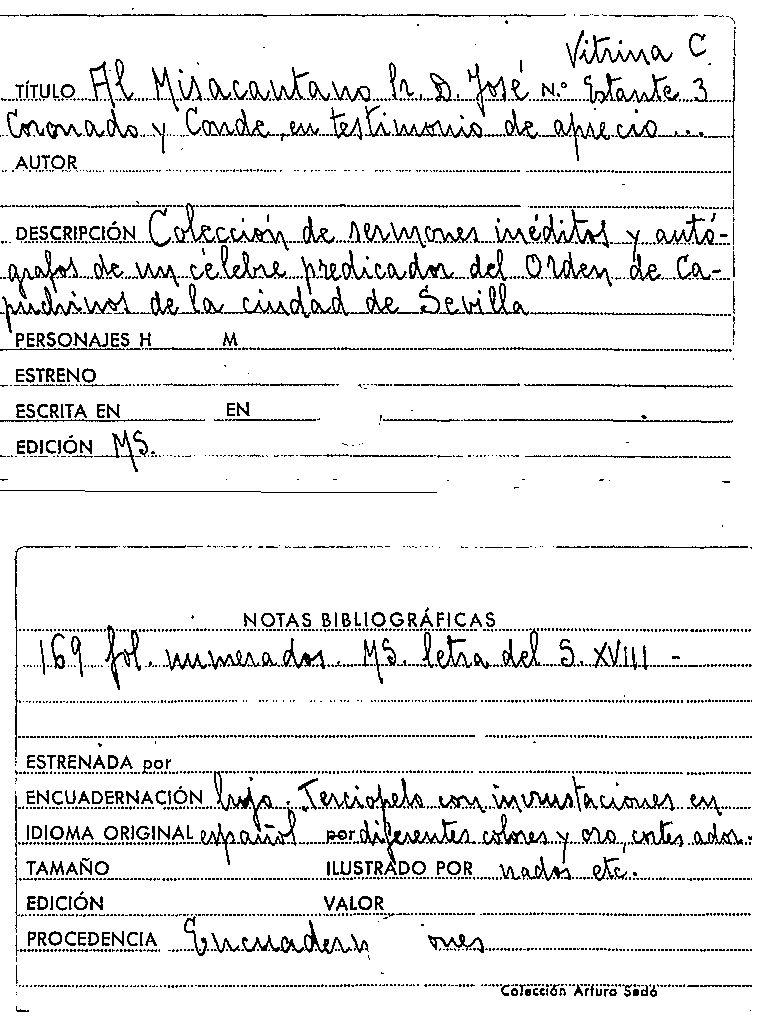 Vitrina C.
TÍTULO Al Misacantano Sr. D. José N.º Estante 3
Coronado y Conde, en testimonio de aprecio ...
AUTOR
DESCRIPCIÓN Colección de sermones inéditos y autó-
grafos de un célebre predicador del Orden de Ca-
puchinos de la ciudad de Sevilla
PERSONAJES H M
ESTRENO
ESCRITA EN EN
EDICIÓN MS.
NOTAS BIBLIOGRÁFICAS
169 fol. numerados. MS. letra del S. XVIII -
ESTRENADA por
ENCUADERNACIÓN lujo. Terciopelo con incrustaciones en
IDIOMA ORIGINAL español por diferentes colores y oro, cortes ador-
TAMAÑO ILUSTRADO POR nados etc.
EDICIÓN VALOR
PROCEDENCIA Encuadern ones
Colección Arturo Sedó